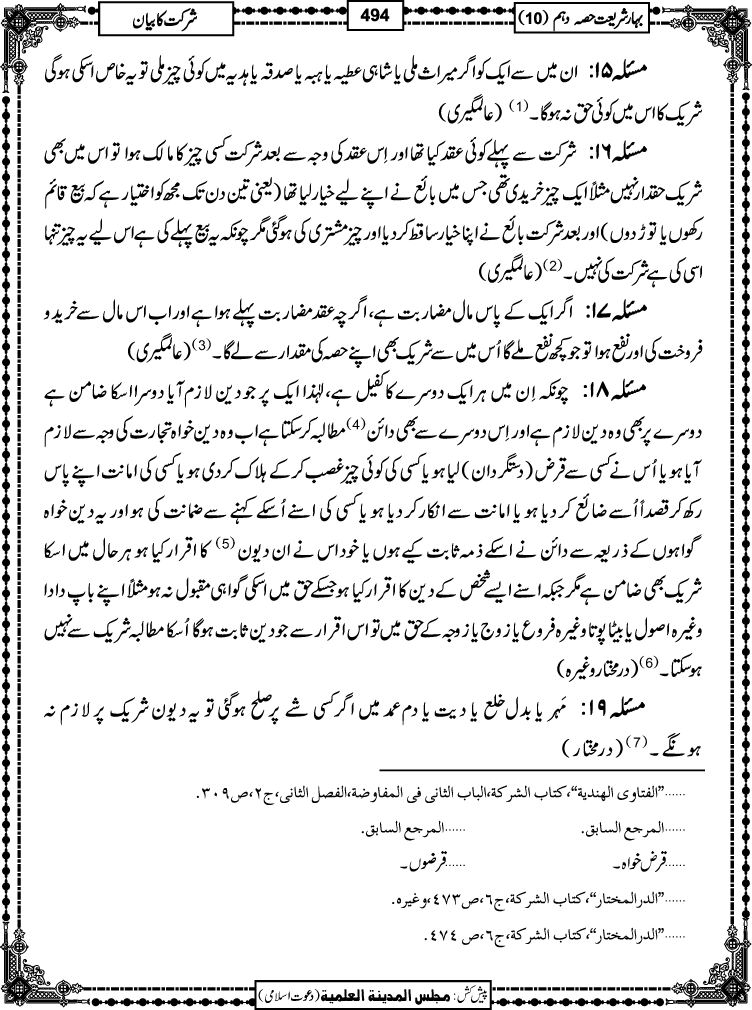 بہار شریعت حصہ دہم (10)
494
شرکت کا بیان
مسئلہ ۱۵: ان میں سے ایک کو اگر میراث ملی یا شاہی عطیہ یا ہبہ یا صدقہ یا ہدیہ میں کوئی چیز ملی تو یہ خاص اسکی ہوگی
شریک کا اس میں کوئی حق نہ ہوگا۔ (1) (عالمگیری)
مسئلہ ۱۶: شرکت سے پہلے کوئی عقد کیا تھا اور اِس عقد کی وجہ سے بعد شرکت کسی چیز کا مالک ہوا تو اس میں بھی
شریک حقدار نہیں مثلاً ایک چیز خریدی تھی جس میں بائع نے اپنے لیے خیار لیا تھا (یعنی تین دن تک مجھ کو اختیار ہے کہ بیع قائم
رکھوں یا توڑدوں) اور بعد شرکت بائع نے اپنا خیار ساقط کر دیا اور چیز مشتری کی ہوگئی مگر چونکہ یہ بیع پہلے کی ہے اس لیے یہ چیز تنہا
اسی کی ہے شرکت کی نہیں۔ (2) (عالمگیری)
مسئلہ ۱۷: اگر ایک کے پاس مال مضاربت ہے، اگرچہ عقد مضاربت پہلے ہوا ہے اور اب اس مال سے خرید و
فروخت کی اور نفع ہوا تو جو کچھ نفع ملے گا اُس میں سے شریک بھی اپنے حصہ کی مقدار سے لے گا۔ (3) (عالمگیری)
مسئلہ ۱۸: چونکہ اِن میں ہر ایک دوسرے کا کفیل ہے، لہٰذا ایک پر جو دین لازم آیا دوسرا اسکا ضامن ہے
دوسرے پر بھی وہ دین لازم ہے اور اِس دوسرے سے بھی دائن (4) مطالبہ کرسکتا ہے اب وہ دین خواہ تجارت کی وجہ سے لازم
آیا ہو یا اُس نے کسی سے قرض (دستگردان) لیا ہو یا کسی کی کوئی چیز غصب کر کے ہلاک کردی ہو یا کسی کی امانت اپنے پاس
رکھ کر قصداً اُسے ضائع کر دیا ہو یا امانت سے انکار کر دیا ہو یا کسی کی اسنے اُسکے کہنے سے ضمانت کی ہو اور یہ دین خواہ
گواہوں کے ذریعہ سے دائن نے اسکے ذمہ ثابت کیے ہوں یا خود اس نے ان دیون (5) کا اقرار کیا ہو ہر حال میں اسکا
شریک بھی ضامن ہے مگر جبکہ اسنے ایسے شخص کے دین کا اقرار کیا ہو جسکے حق میں اسکی گواہی مقبول نہ ہو مثلاً اپنے باپ دادا
وغیرہ اصول یا بیٹا پوتا وغیرہ فروع یا زوج یا زوجہ کے حق میں تو اس اقرار سے جو دین ثابت ہوگا اُسکا مطالبہ شریک سے نہیں
ہوسکتا۔ (6) (درمختار وغیرہ)
مسئلہ ۱۹: مَہر یا بدل خلع یا دیت یا دم عمد میں اگر کسی شے پر صلح ہوگئی تو یہ دیون شریک پر لازم نہ
ہونگے۔ (7) (درمختار)
......"الفتاوی الھندیة"، کتاب الشرکة، الباب الثانی فی المفاوضة، الفصل الثانی، ج۲، ص۳۰۹.
......المرجع السابق. ......المرجع السابق.
......قرض خواہ۔ ......قرضوں۔
......"الدرالمختار"، کتاب الشرکة، ج۶، ص۴۷۳، وغیرہ.
......"الدرالمختار"، کتاب الشرکة، ج۶، ص ۴۷۴.
پیش کش: مجلس المدینة العلمیة (دعوت اسلامی)